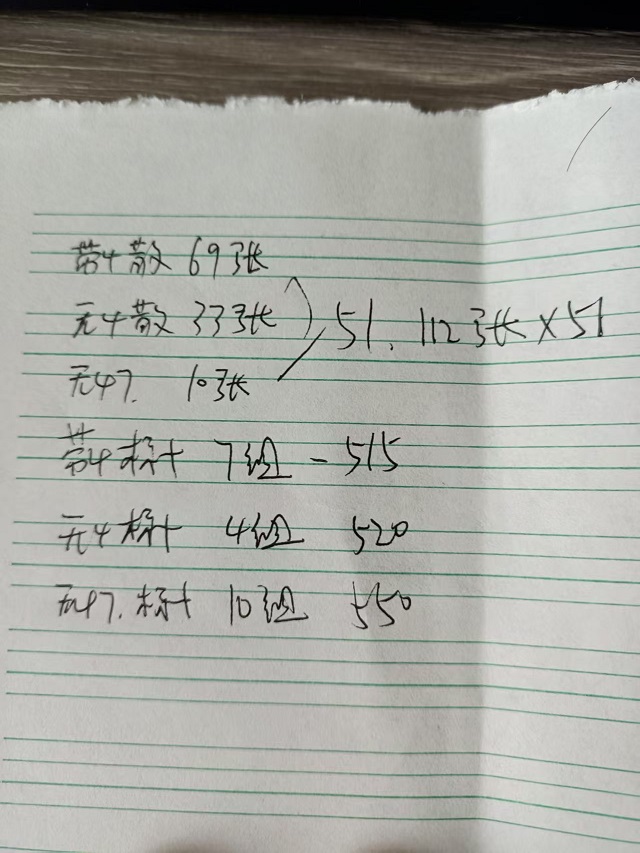 带4散 69张
无4散 33张
无47. 10张
51. 112张×51
带4标十 7组-515
无4标十 4组 520
无47.标十 10组 550